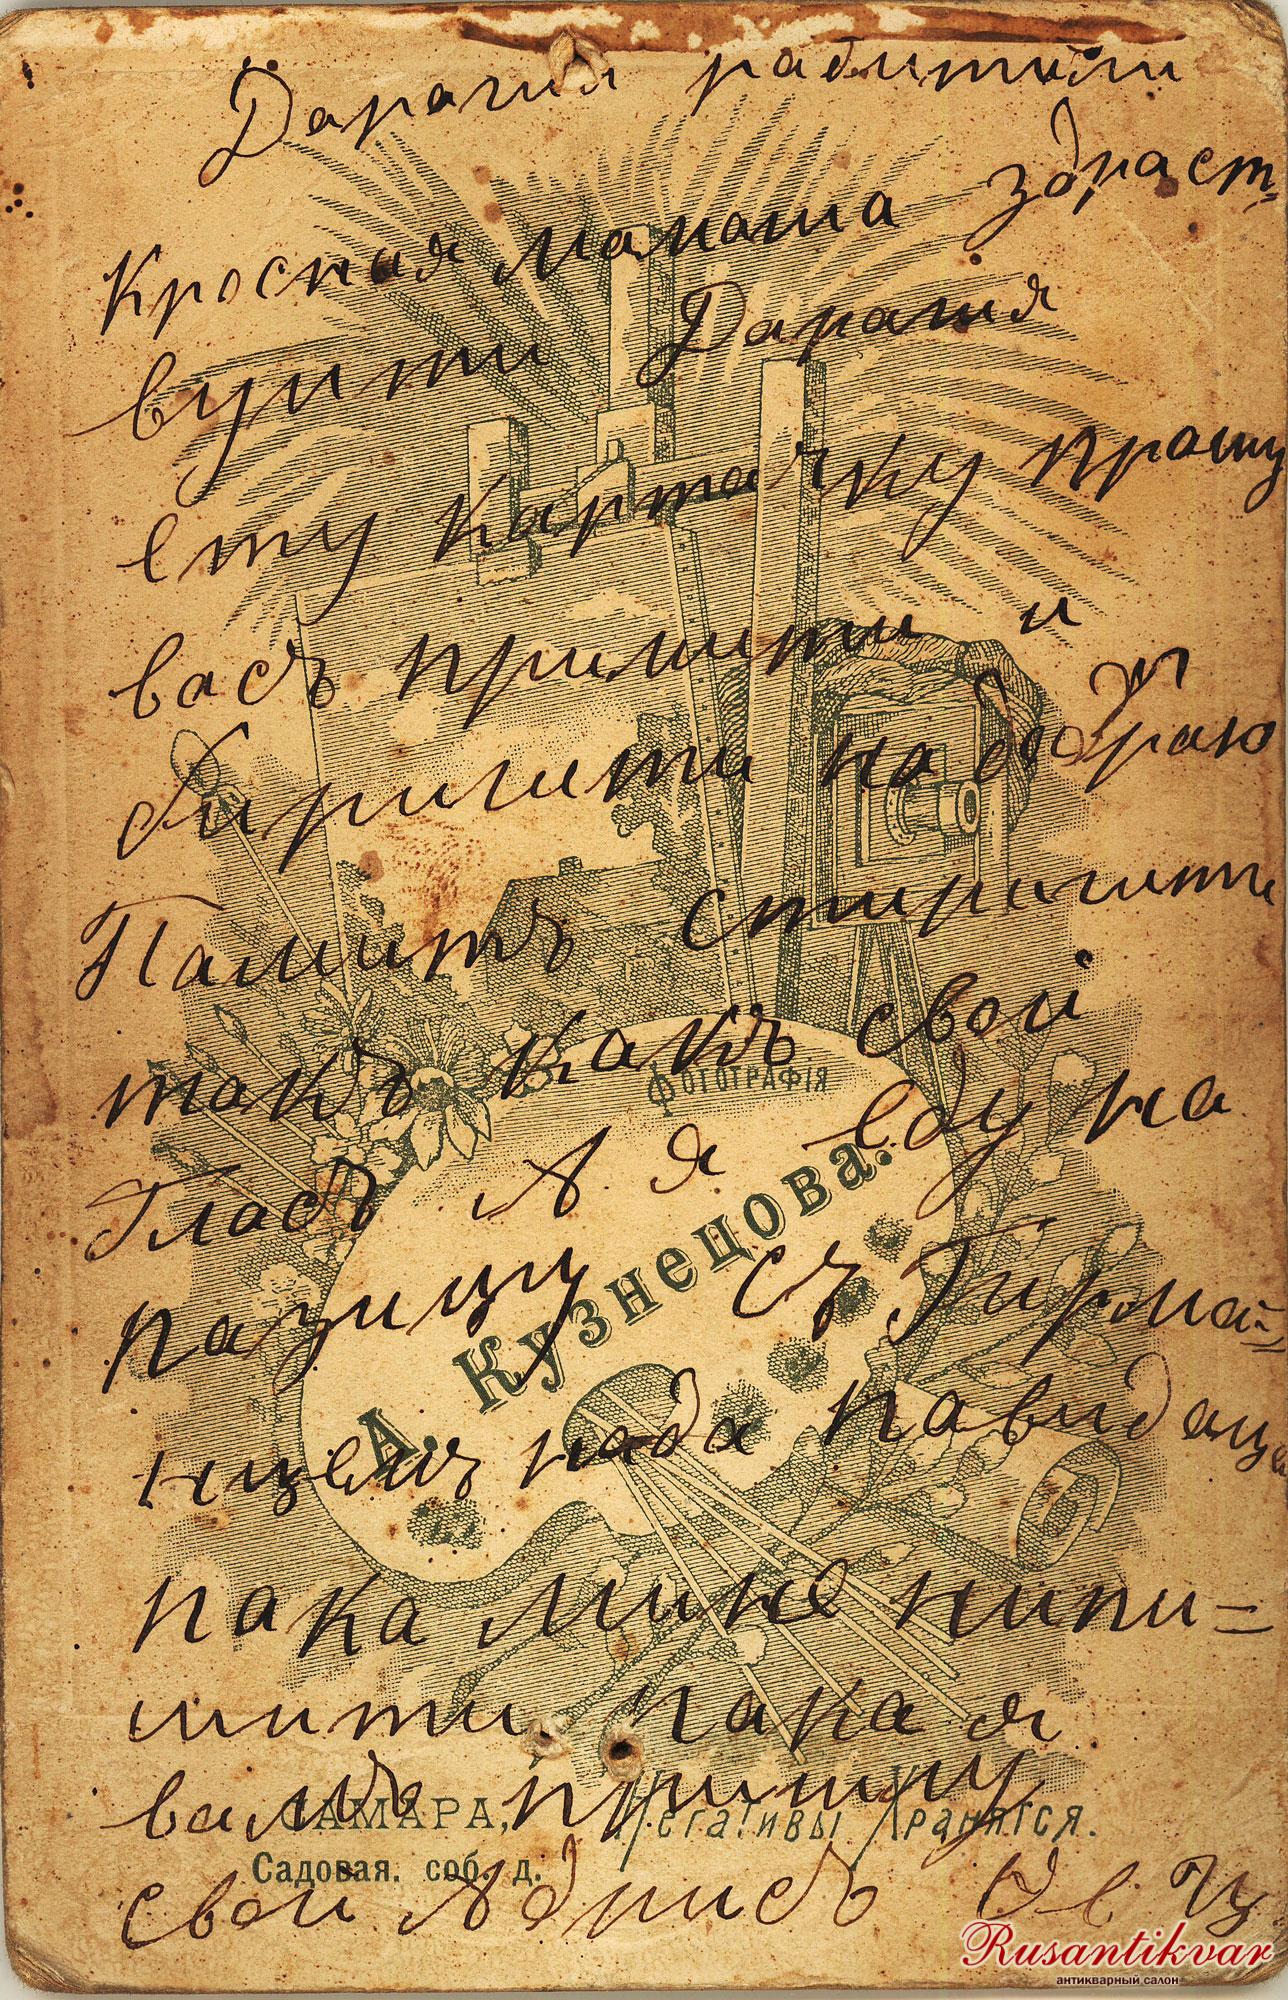 Дарагия радитили
Кросная мамаша здраст-
вуити Дарагия
ету карточку прашу
васъ примити и
биригити на добраю
Памить стиригити
такъ какъ свой
Гласъ А я еду на
пазицу съ Гирма-
нцемъ нада павидаца
пака мине нипи-
шити пака я
вамъ пришлу
свои Адрисъ
ФОТОГРАФІЯ
А. Кузнецова.
САМАРА,
Садовая. соб. д.
Негативы Хранятся.
Rusantikvar
антикварный салон